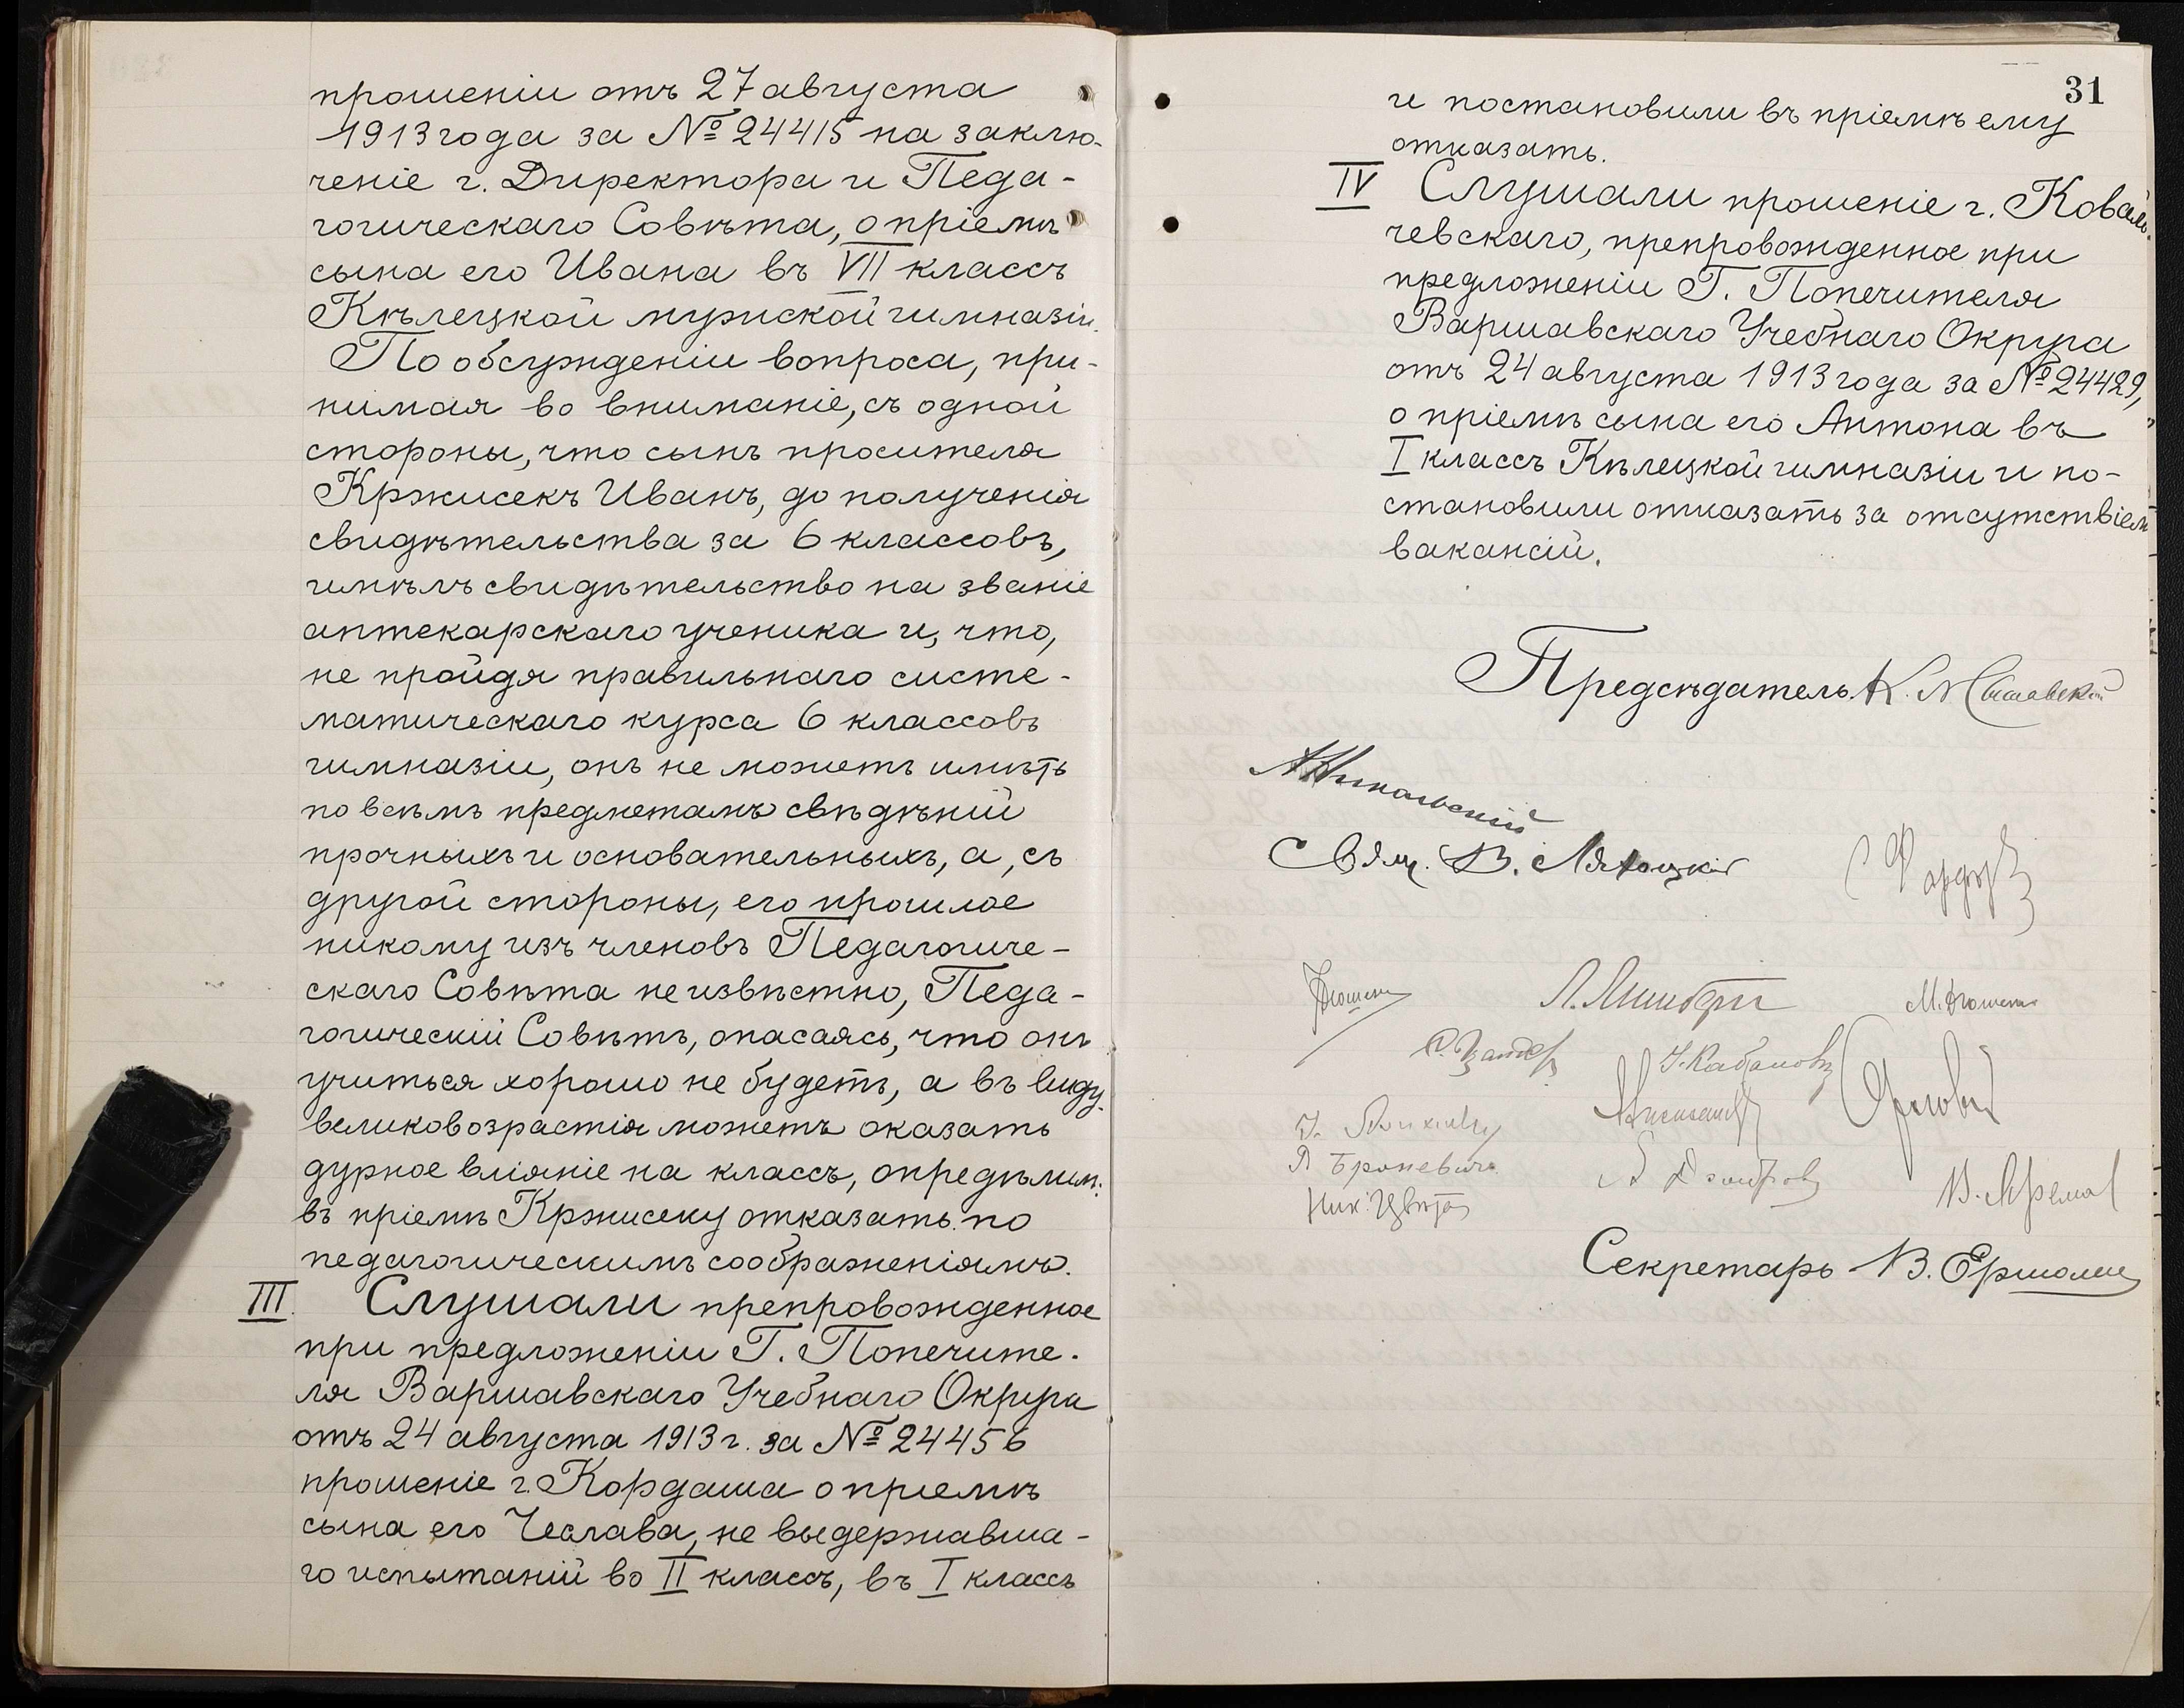 прошеніи отъ 27 августа
1913 года за № 24415 на заклю-
ченіе г. Директора и Педа-
гогическаго Совѣта, о пріемѣ
сына его Ивана въ VII классъ
Кѣлецкой мужской гимназіи.
По обсужденіи вопроса, при-
нимая во вниманіе, съ одной
стороны, что сынъ просителя
Кржисекъ Иванъ, до полученія
свидѣтельства за 6 классовъ,
имѣлъ свидѣтельство на званіе
аптекарскаго ученика и, что,
не пройдя правильнаго систе-
матическаго курса 6 классовъ
гимназіи, онъ не можетъ имѣть
по всѣмъ предметамъ свѣдѣній
прочныхъ и основательныхъ, а, съ
другой стороны, его прошлое
никому изъ членовъ Педагогиче-
скаго Совѣта неизвѣстно, Педа-
гогическій Совѣтъ, опасаясь, что онъ
учиться хорошо не будетъ, а въ виду
великовозрастія можетъ оказать
дурное вліяніе на классъ, опредѣлилъ:
въ пріемѣ Кржисеку отказать по
педагогическимъ соображеніямъ.
III. Слушали препровожденное
при предложеніи Г. Попечите-
ля Варшавскаго Учебнаго Округа
отъ 24 августа 1913 г. за № 24456
прошеніе г. Кордаша о пріемѣ
сына его Чеслава, не выдержавша-
го испытаній во II классъ, въ I классъ
31
и постановили въ пріемѣ ему
отказать.
IV Слушали прошеніе г. Коваль-
чевскаго, препровожденное при
предложеніи Г. Попечителя
Варшавскаго Учебнаго Округа
отъ 24 августа 1913 года за № 24429,
о пріемѣ сына его Антона въ
I классъ Кѣлецкой гимназіи и по-
становили отказать за отсутствіемъ
вакансій.
Предсѣдатель К.
А Никольскій
Свящ. В.
Л.
М.
І. Кабановъ
Орловъ
Я Броневичъ
А Дмитровъ
В.
Ник. Цвѣтовъ
Секретарь В.